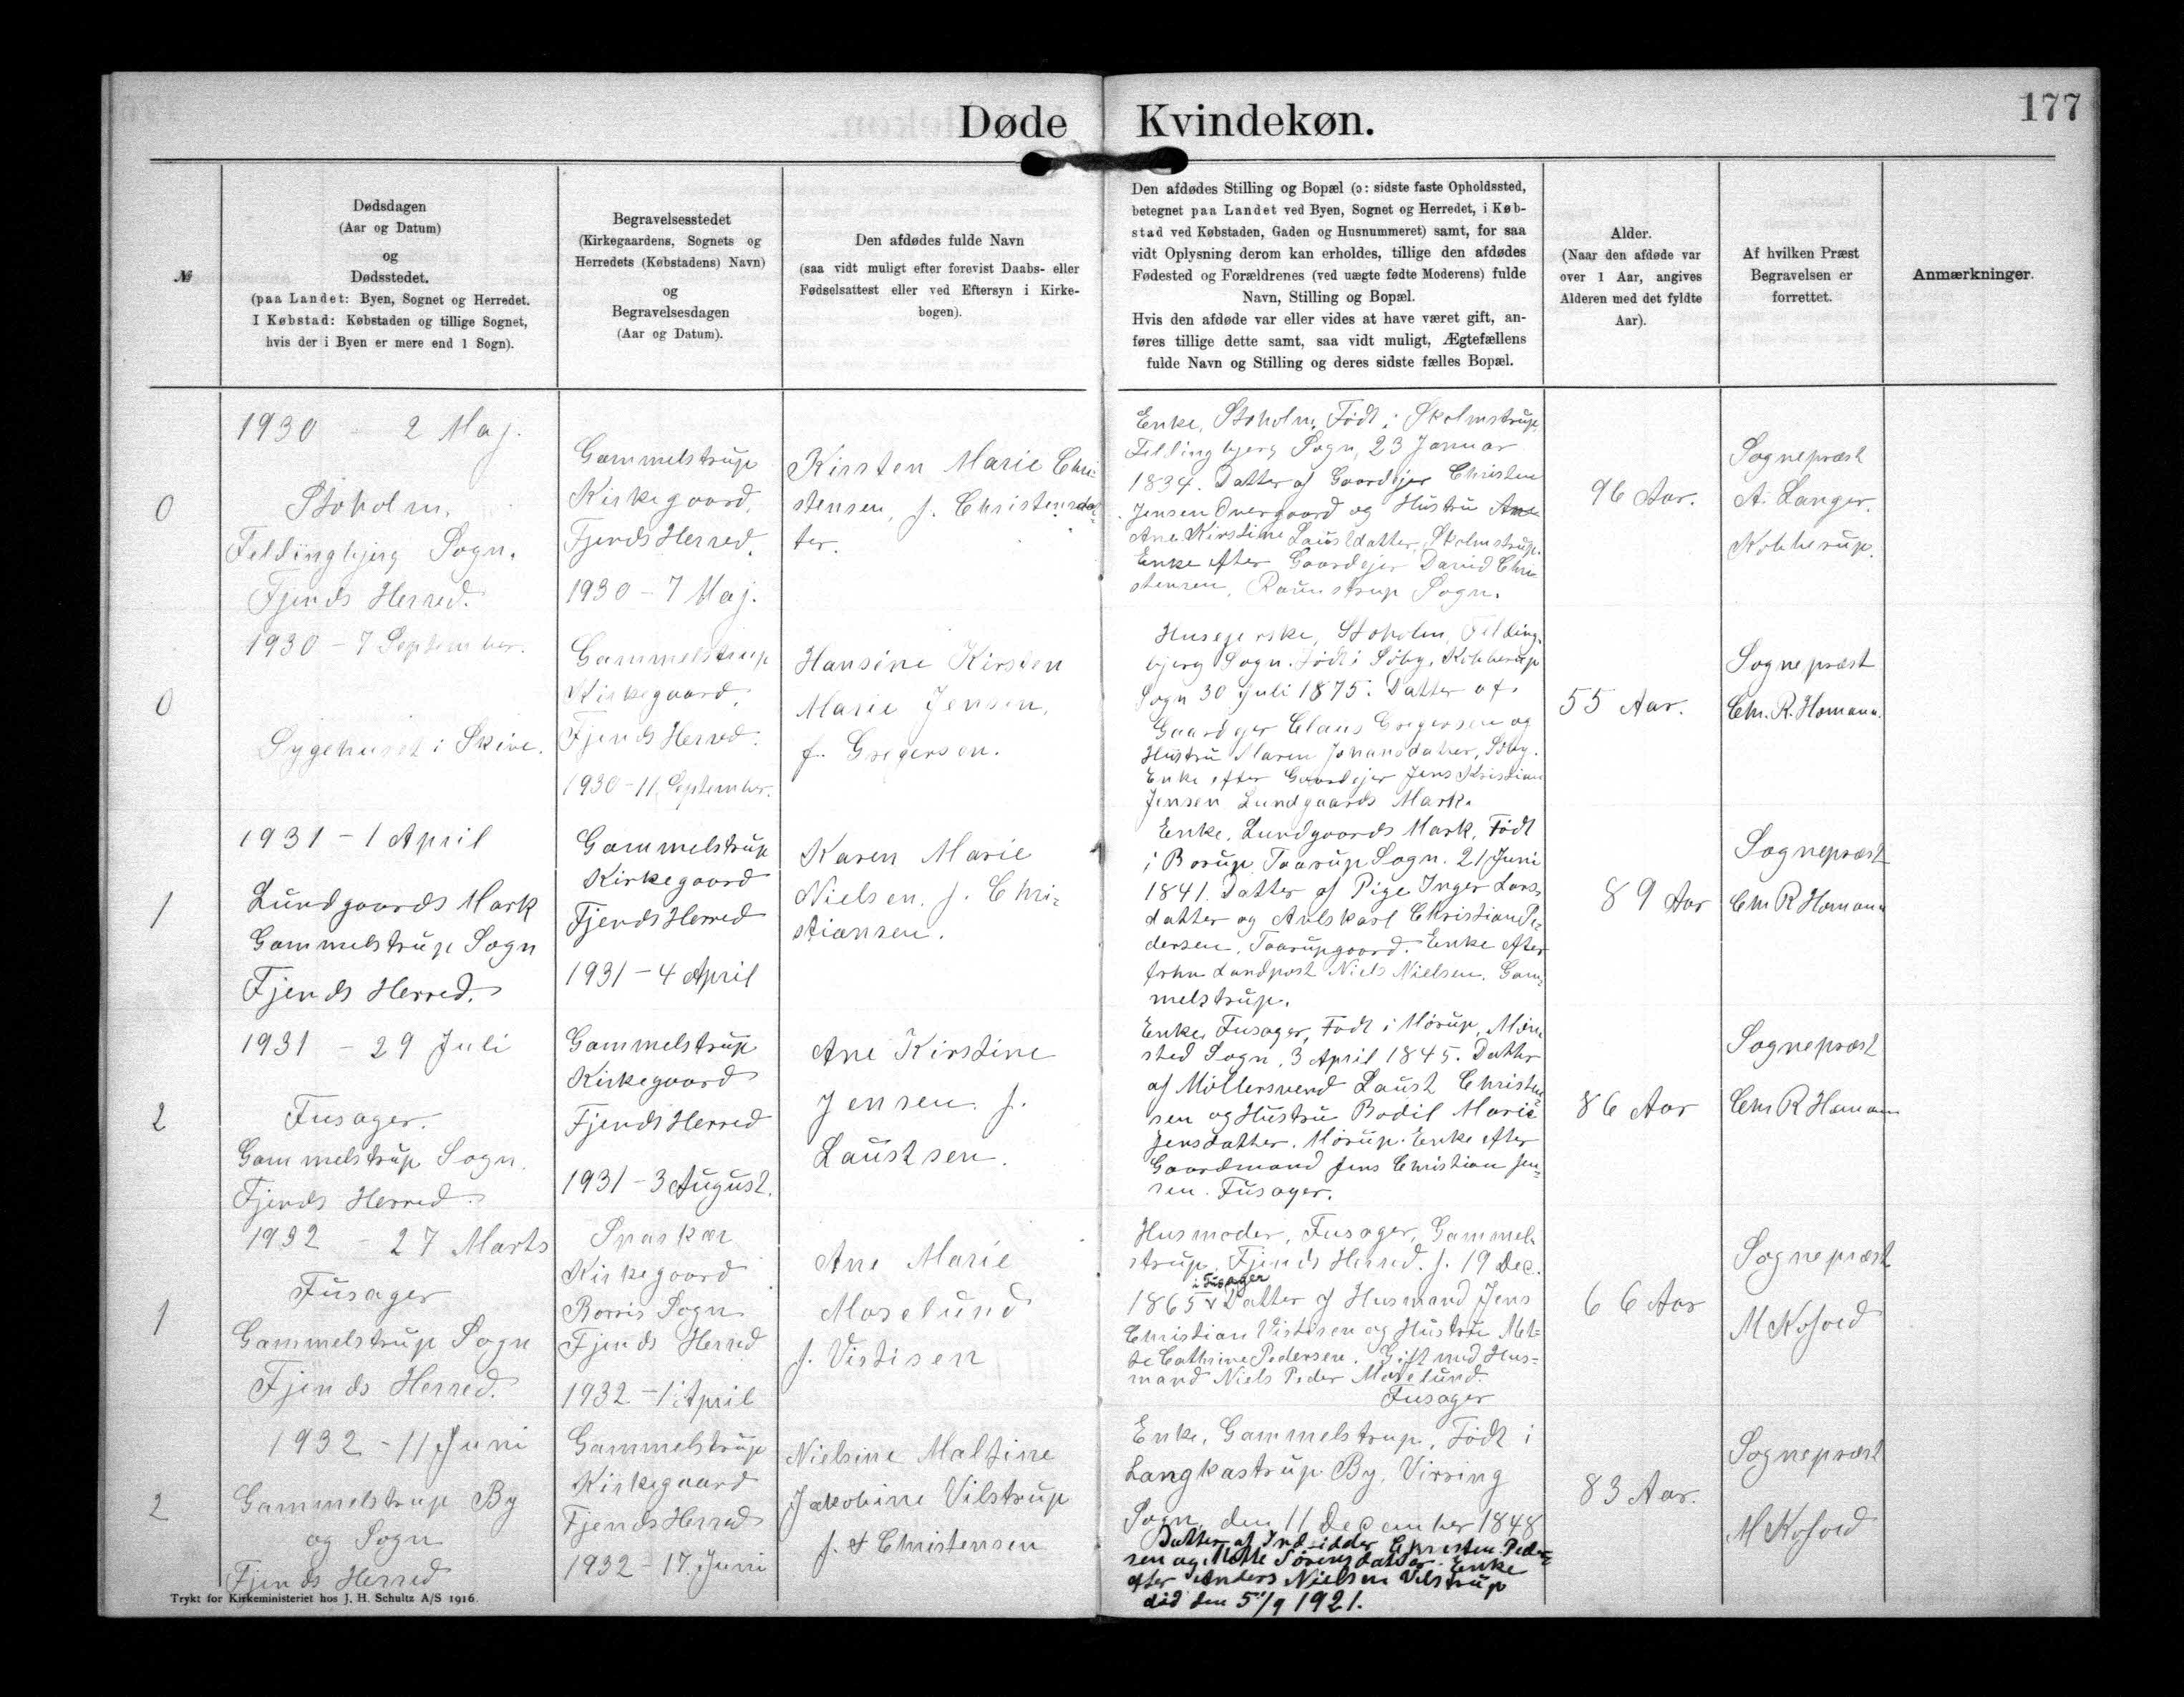 177
Døde Kvindekøn.
№
Dødsdagen
(Aar og Datum)
og
Dødsstedet.
(paa Landet: Byen, Sognet og Herredet.
I Købstad: Købstaden og tillige Sognet,
hvis der i Byen er mere end 1 Sogn).
Begravelsesstedet
(Kirkegaardens, Sognets og
Herredets (Købstadens) Navn)
og
Begravelsesdagen
(Aar og Datum).
Den afdødes fulde Navn
(saa vidt muligt efter forevist Daabs- eller
Fødselsattest eller ved Eftersyn i Kirke-
bogen).
Den afdødes Stilling og Bopæl (ɔ: sidste faste Opholdssted,
betegnet paa Landet ved Byen, Sognet og Herredet, i Køb-
stad ved Købstaden, Gaden og Husnummeret) samt, for saa
vidt Oplysning derom kan erholdes, tillige den afdødes
Fødested og Forældrenes (ved uægte fødte Moderens) fulde
Navn, Stilling og Bopæl.
Hvis den afdøde var eller vides at have været gift, an-
føres tillige dette samt, saa vidt muligt, Ægtefællens
fulde Navn og Stilling og deres sidste fælles Bopæl.
Alder.
(Naar den afdøde var
over 1 Aar, angives
Alderen med det fyldte
Aar).
Af hvilken Præst
Begravelsen er
forrettet.
Anmærkninger.
0
1930 - 2 Maj.
Stoholm.
Feldingbjerg Sogn.
Fjends Herred.
Gammelstrup
Kirkegaard,
Fjends Herred.
1930 - 7 Maj.
Kirsten Marie Chri-
stensen, f. Christensdat-
ter.
Enke, Stoholm, Født i Skelmstrup
Feldingbjerg Sogn, 23 Januar
1834. Datter af Gaardejer Christen
Jensen Overgaard og Hustru Ane
Ane Kirstine Laustdatter, Skelmstrup.
Enke efter Gaardejer David Chri-
stensen, Raunstrup Sogn.
96 Aar.
Sognepræst
A. Langer.
Kobberup.
0
1930 - 7 September.
Sygehuset i Skive.
Gammelstrup
Kirkegaard,
Fjends Herred.
1930 - 11 September.
Hansine Kirsten
Marie Jensen,
f. Gregersen.
Husejerske, Stoholm, Felding-
bjerg Sogn. Født i Søby, Kobberup
Sogn 30 Juli 1875. Datter af
Gaardejer Claus Gregersen og
Hustru Maren Johansdatter, Søby.
Enke efter Gaardejer Jens Kristian
Jensen Lundgaards Mark.
55 Aar.
Sognepræst
Chr. R. Homann.
1
1931 - 1 April
Lundgaards Mark
Gammelstrup Sogn
Fjends Herred.
Gammelstrup
Kirkegaard
Fjends Herred
1931 - 4 April
Karen Marie
Nielsen. f. Chri-
stiansen.
Enke, Lundgaards Mark, Født
i Borup, Taarup Sogn. 21 Juni
1841. Datter af Pige Inger Lars-
datter og Avlskarl Christian Pe-
dersen, Taarupgaard. Enke efter
frhv Landpost Niels Nielsen. Gam-
melstrup.
89 Aar
Sognepræst
Chr R Homann
2
1931 - 29 Juli
Fusager.
Gammelstrup Sogn.
Fjends Herred
Gammelstrup
Kirkegaard
Fjends Herred
1931 - 3 August.
Ane Kirstine
Jensen. f.
Laustsen.
Enke, Fusager, Født i Mørup, Møn-
sted Sogn, 3 April 1845. Datter
af Møllersvend Laust Christen-
sen og Hustru Bodil Marie
Jensdatter. Mørup. Enke efter
Gaardmand Jens Christian Jen-
sen. Fusager.
86 Aar
Sognepræst
Chr R Homann
1
1932 - 27 Marts
Fusager
Gammelstrup Sogn
Fjends Herred.
Sparkær
Kirkegaard
Borris Sogn
Fjends Herred
1932 - 1 April
Ane Marie
Moselund
f. Vistisen
Husmoder, Fusager, Gammel-
strup, Fjends Herred. f. 19 Dec.
i Fusager
1865 v Datter af Husmand Jens
Christian Vistisen og Hustru Met-
te Cathrine Pedersen. Gift med Hus-
mand Niels Peder Moselund.
Fusager
66 Aar
Sognepræst
M Kofoed
2
1932 - 11 Juni
Gammelstrup By
og Sogn
Fjends Herred
Gammelstrup
Kirkegaard
Fjends Herred
1932 - 17. Juni
Nielsine Maltine
Jakobine Vilstrup
f. Christensen
Enke, Gammelstrup, Født i
Langkastrup By, Virring
Sogn, den 11 December 1848
Datter af Indsidder Christen Peder-
sen og Mette Sørensdatter. Enke
efter Anders Nielsen Vilstrup
død den 5/9 1921.
83 Aar.
Sognepræst
M Kofoed
Trykt for Kirkeministeriet hos J. H. Schultz A/S 1916.